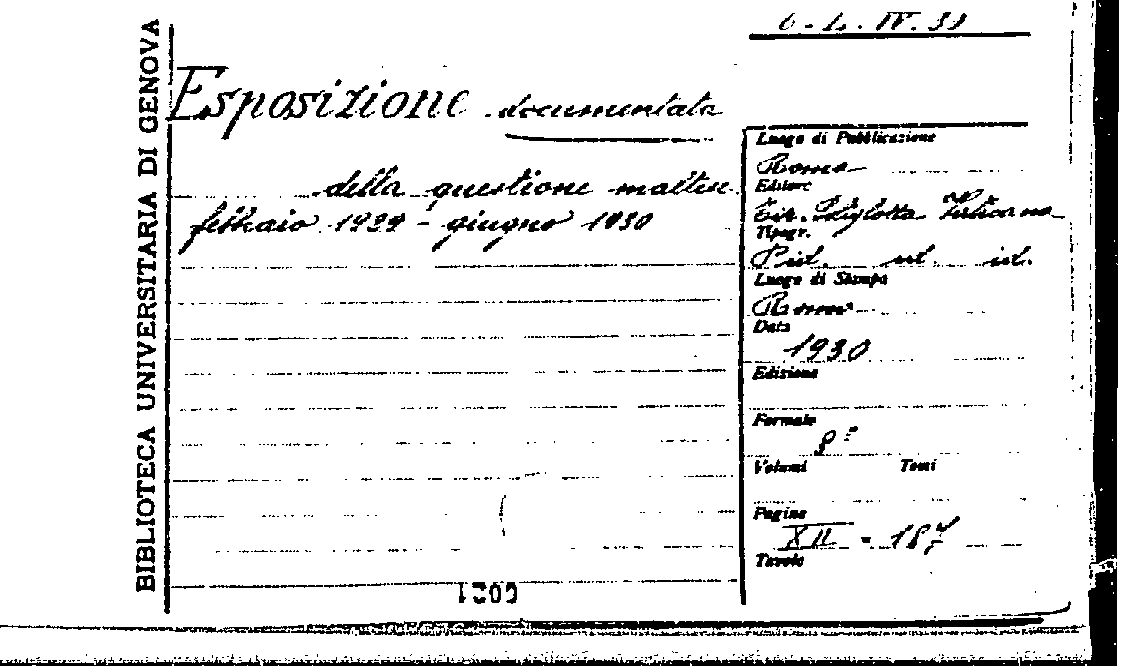 BIBLIOTECA UNIVERSITARIA DI GENOVA
6.L.IV.33
Esposizione documentata
della questione maltese
febbraio 1929 - giugno 1930
Luogo di Pubblicazione
Roma
Editore
Tip. Poliglotta Vaticana
Tipogr.
id.
Luogo di Stampa
Roma
Data
1930
Edizione
Formato
8º
Volumi Tomi
Pagine
XII - 187
Tavole